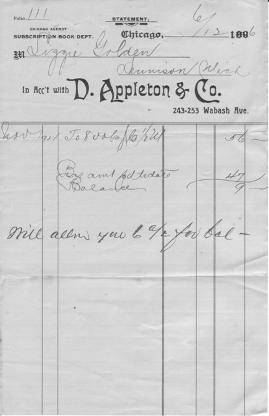 Folio 111
STATEMENT.
CHICAGO AGENCY
SUBSCRIPTION BOOK DEPT.
Chicago, 6/12 1896
M Lizzie Golden
Mich
In Acc't with D. Appleton & Co.
243-253 Wabash Ave.
Nov To 8 vols 56 –
By amt pd to date 47
Balance 9 –
Will allow you 6 for bal –